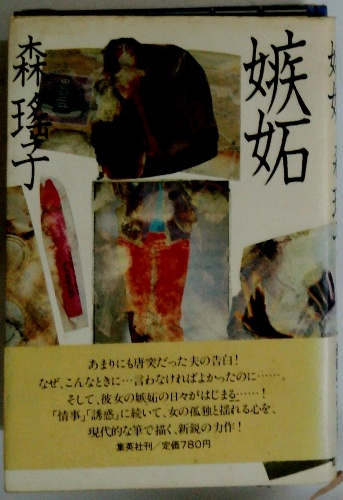 嫉妬
森瑤子
あまりにも唐突だった夫の告白！
なぜ、こんなときに…言わなければよかったのに……。
そして、彼女の嫉妬の日々がはじまる……！
「情事」「誘惑」に続いて、女の孤独と揺れる心を、
現代的な筆で描く、新鋭の力作！
集英社刊／定価780円